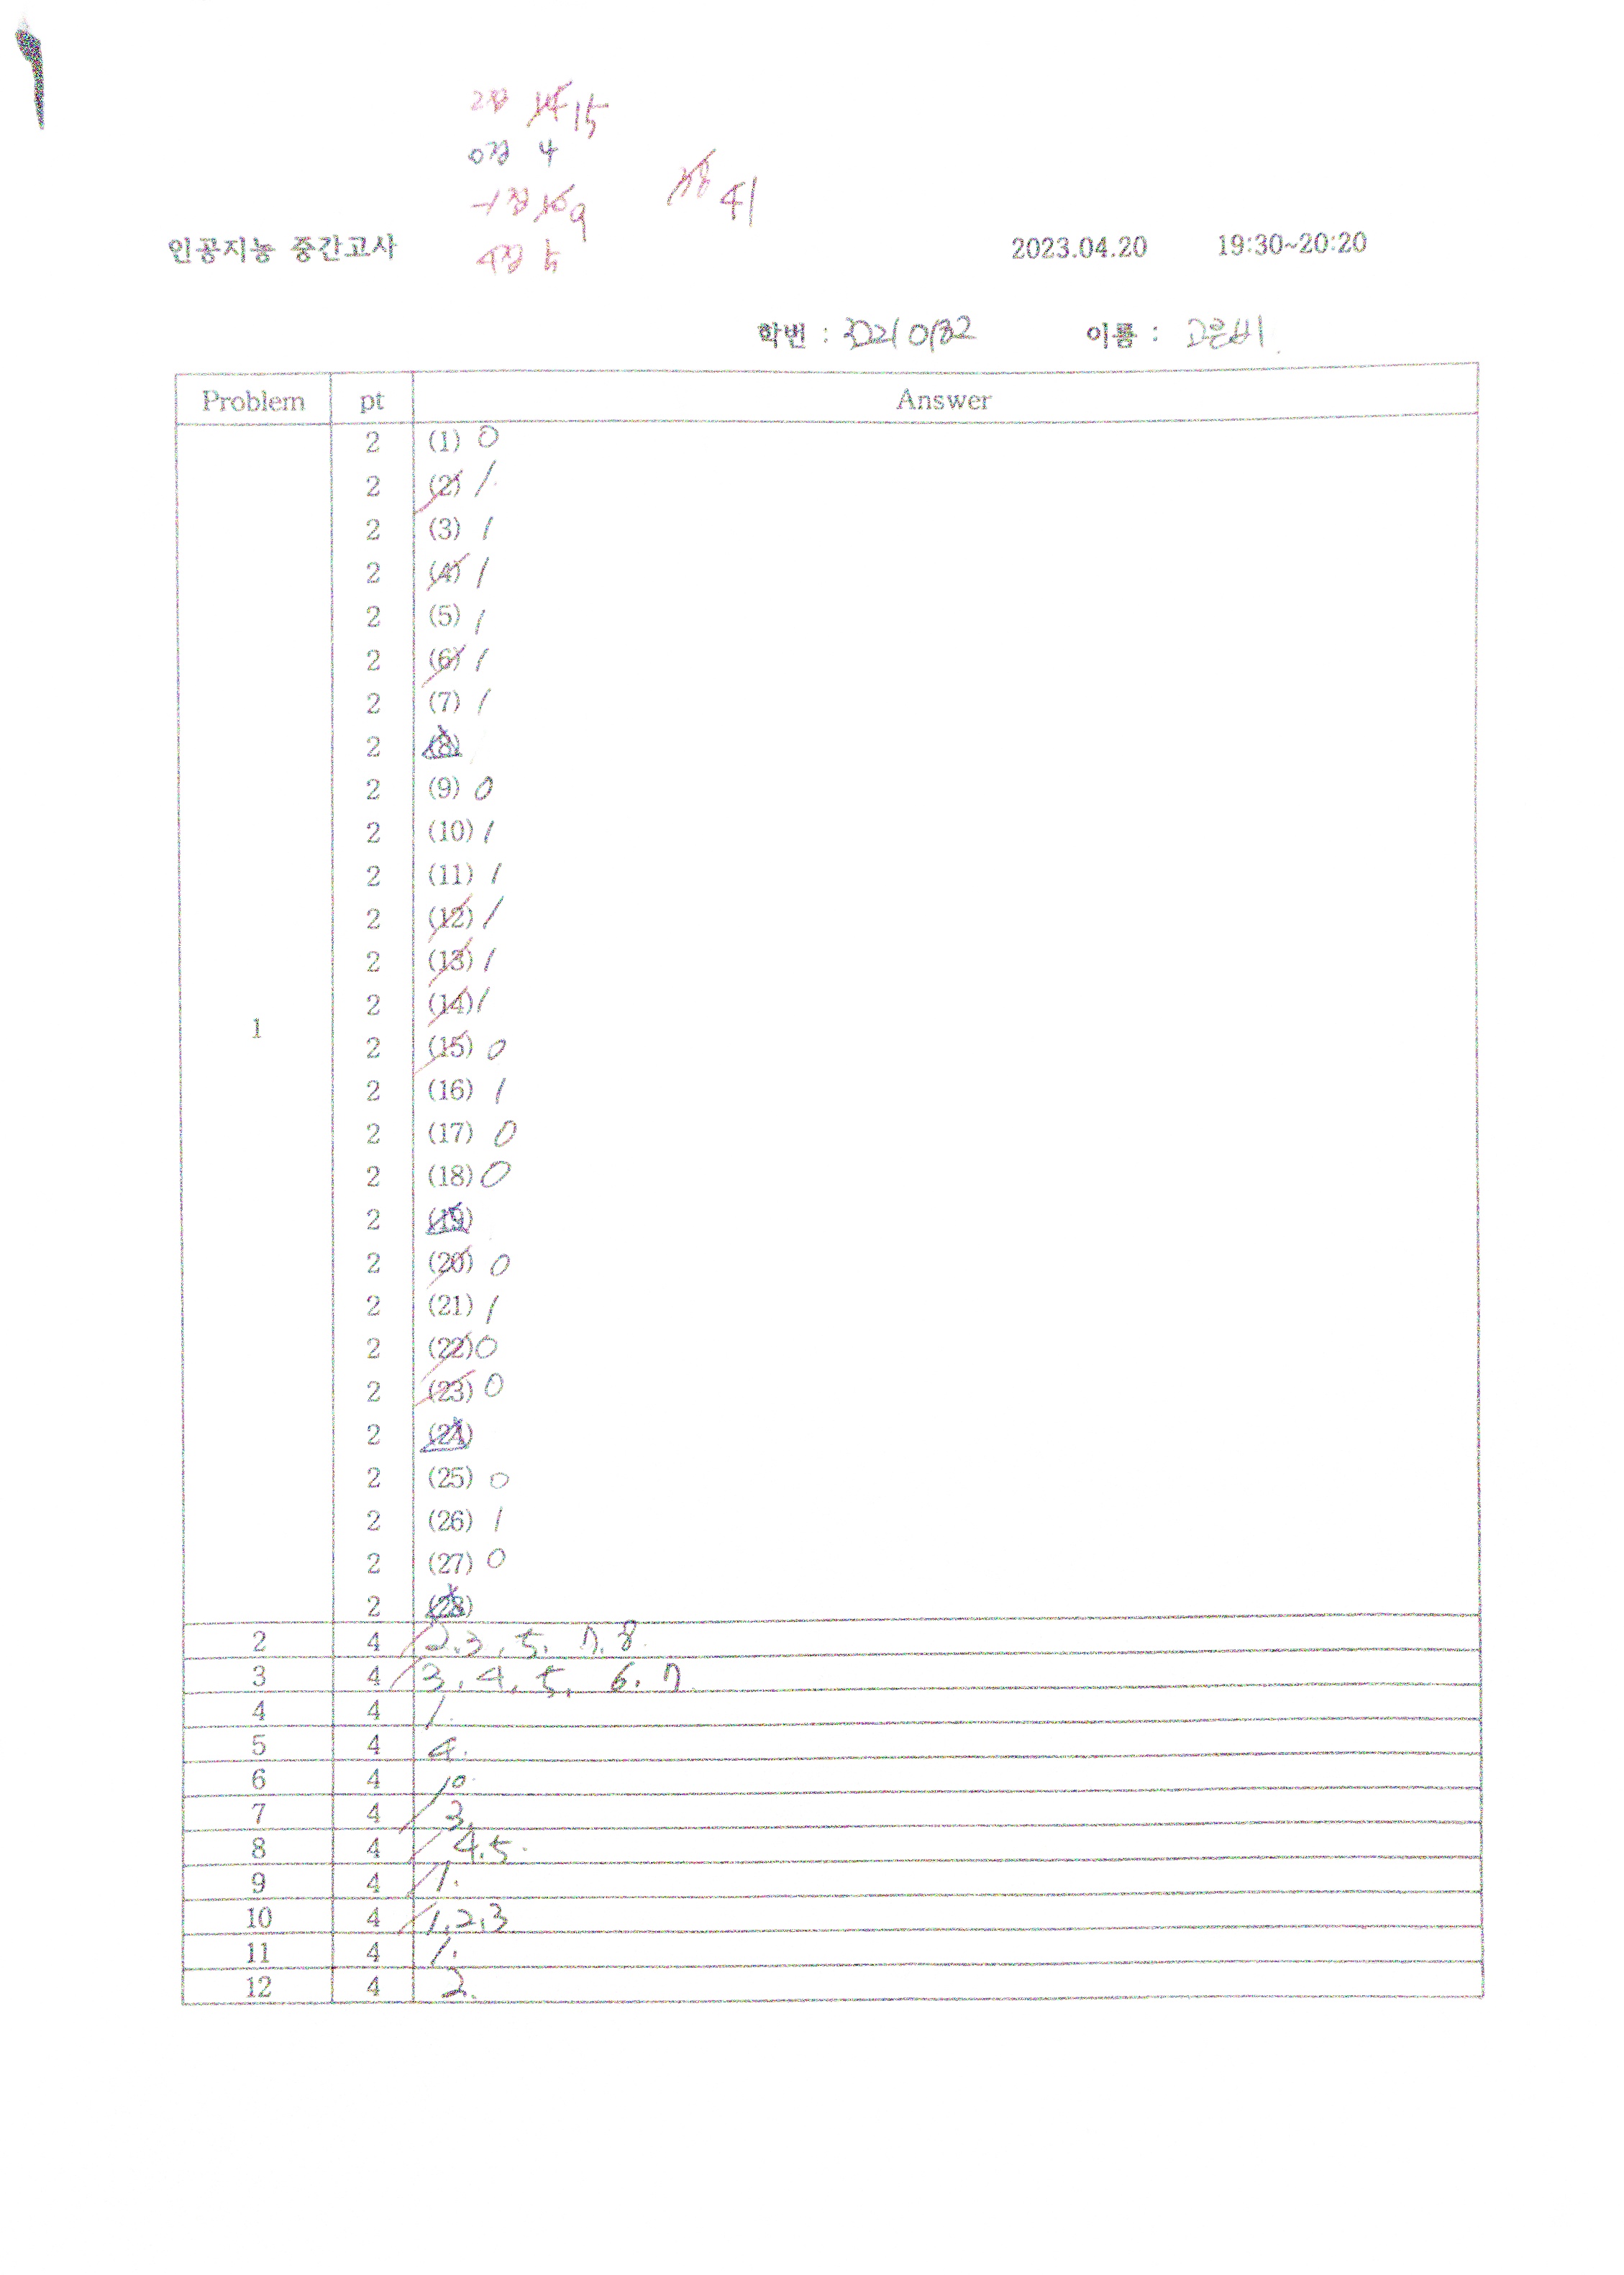 2점 15
0점 4
-1점 9
41
4점 5
인공지능 중간고사 2023.04.20 19:30~20:20
학번 : 이름 : 고은비
Problem pt Answer
2 (1) 0
2 (2) 1
2 (3) 1
2 (4) 1
2 (5) 1
2 (6) 1
2 (7) 1
2 (8)
2 (9) 0
2 (10) 1
2 (11) 1
2 (12) 1
2 (13) 1
2 (14) 1
1
2 (15) 0
2 (16) 1
2 (17) 0
2 (18) 0
2 (19)
2 (20) 0
2 (21) 1
2 (22) 0
2 (23) 0
2 (24)
2 (25) 0
2 (26) 1
2 (27) 0
2 (28)
2 4 2.3, 5, 7. 8.
3 4 3, 4, 5, 6, 7.
4 4 1.
5 4 4.
6 4 10.
7 4 3.
8 4 4.5.
9 4 1.
10 4 1,2,3
11 4 1.
12 4 2.